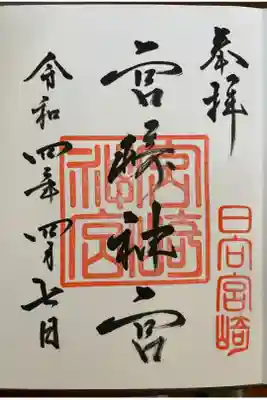 奉拝
日向宮崎
宮崎神宮
宮崎
神宮
令和四年四月七日